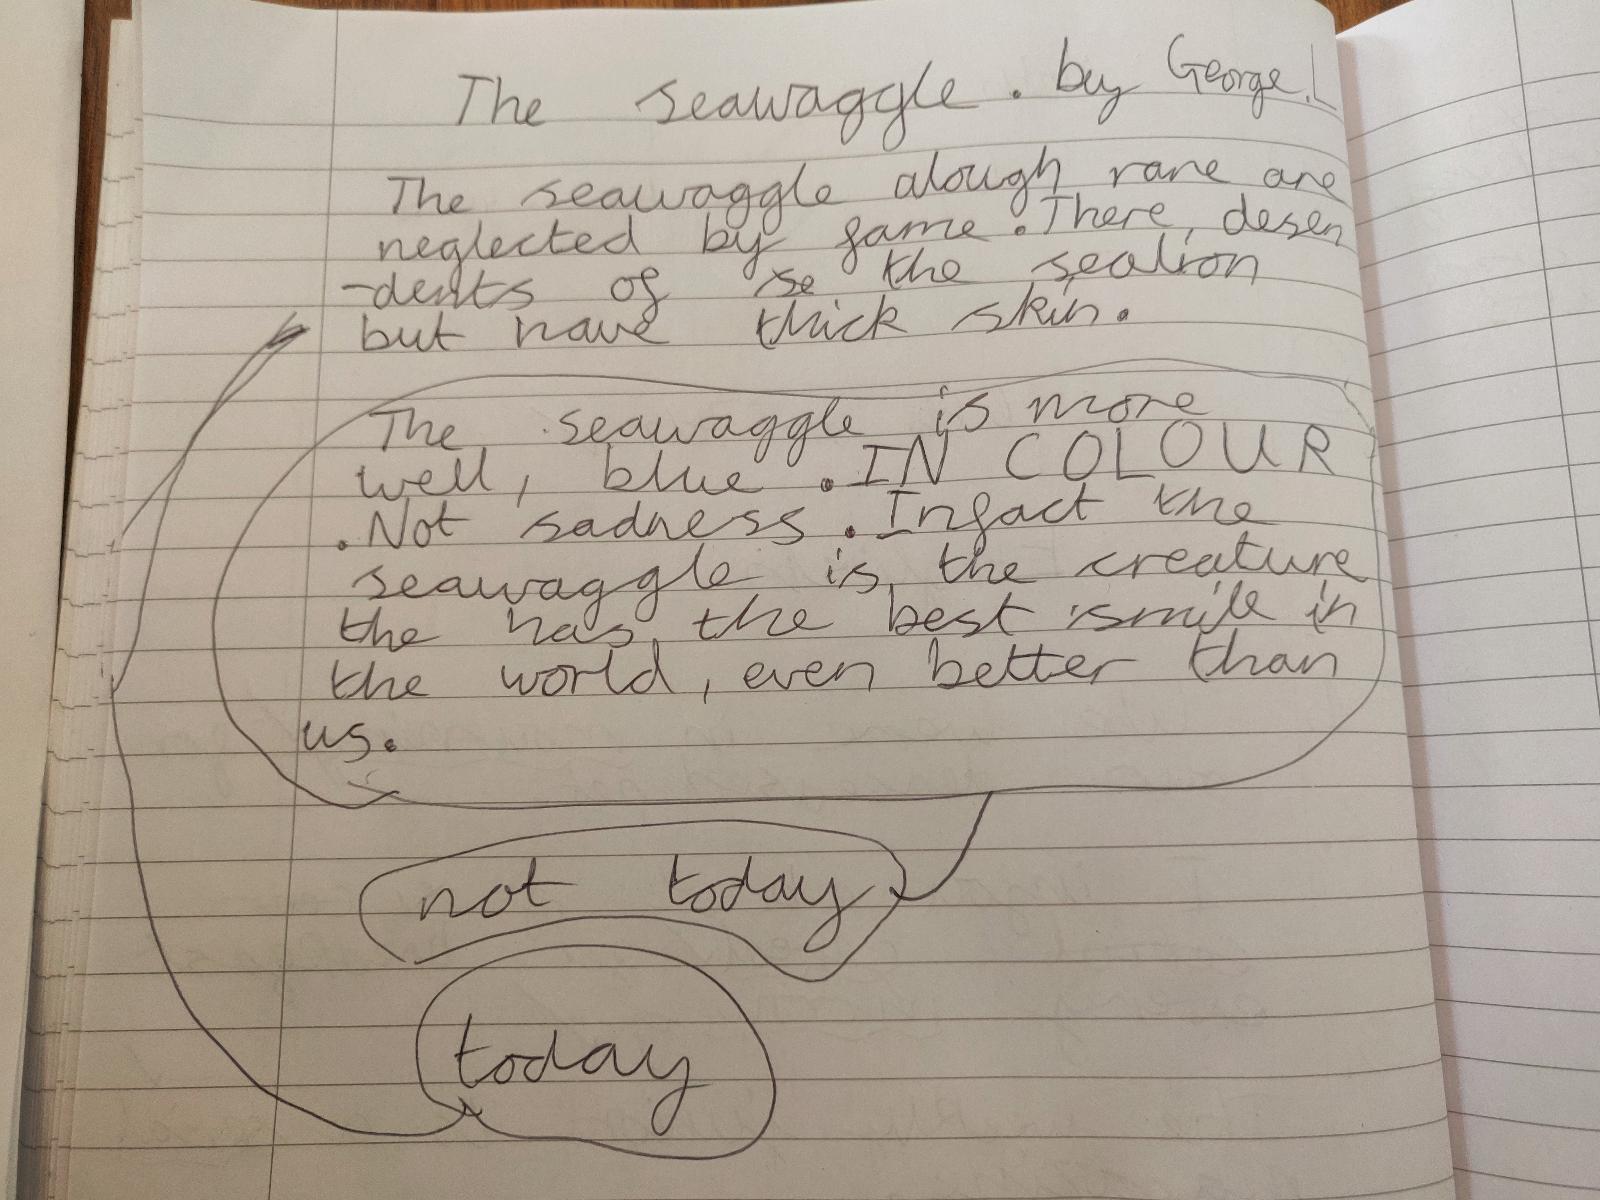 The seawaggle . by George.L
The seawaggle alough rare are
neglected by fame . There, desen
-dents of se the sealion
but have thick skin.
The seawaggle is more
well, blue . IN COLOUR
. Not sadness . Infact the
seawaggle is, the creature
the has, the best smile in
the world, even better than
us.
not today
today